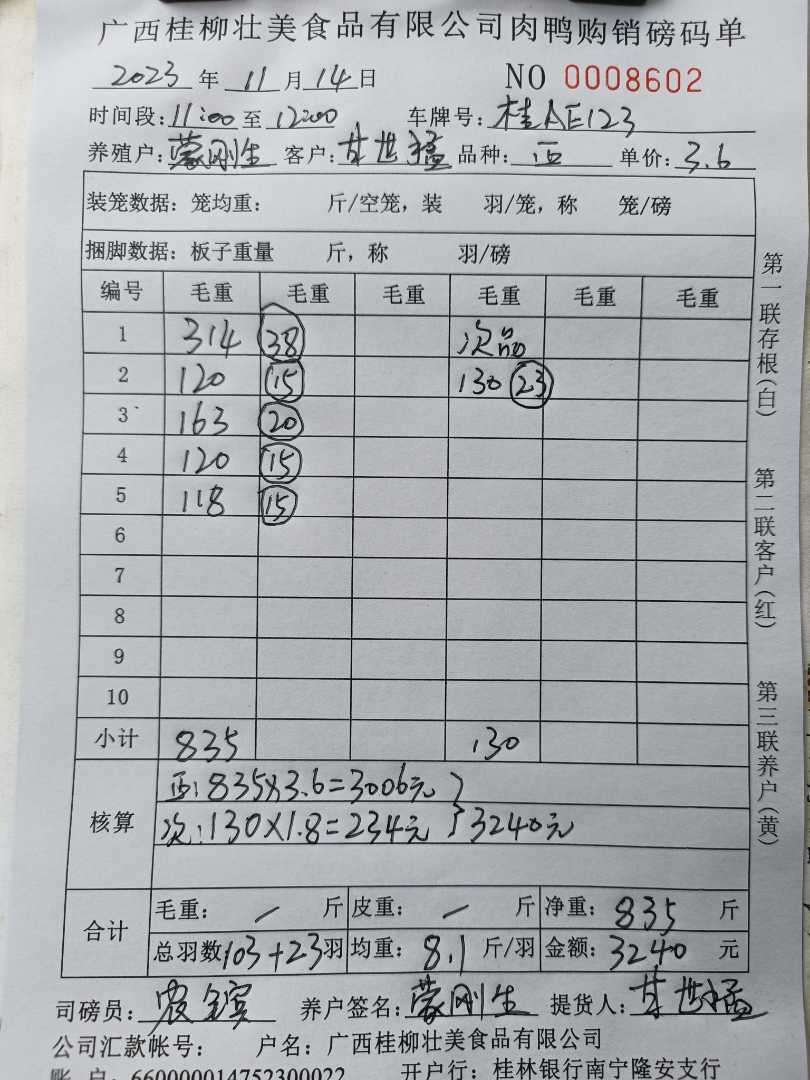 广西桂柳壮美食品有限公司肉鸭购销磅码单
2023 年 11 月 14 日 NO 0008602
时间段: 11:00 至 12:00 车牌号: 桂AE123
养殖户: 蒙刚生 客户: 甘世猛 品种: 西 单价: 3.6
装笼数据: 笼均重: 斤/空笼, 装 羽/笼, 称 笼/磅
捆脚数据: 板子重量 斤, 称 羽/磅
编号 毛重 毛重 毛重 毛重 毛重 毛重
1 314 38 次品
2 120 15 130 23
3 163 20
4 120 15
5 118 15
6
7
8
9
10
小计 835 130
核算
西: 835×3.6=3006元
次: 130×1.8=234元 } 3240元
合计
毛重: / 斤 皮重: / 斤 净重: 835 斤
总羽数 103+23 羽 均重: 8.1 斤/羽 金额: 3240 元
司磅员: 养户签名: 蒙刚生 提货人: 甘世猛
公司汇款帐号: 户名: 广西桂柳壮美食品有限公司
账 户: 660000014752300022 开户行: 桂林银行南宁隆安支行
第一联存根(白)
第二联客户(红)
第三联养户(黄)